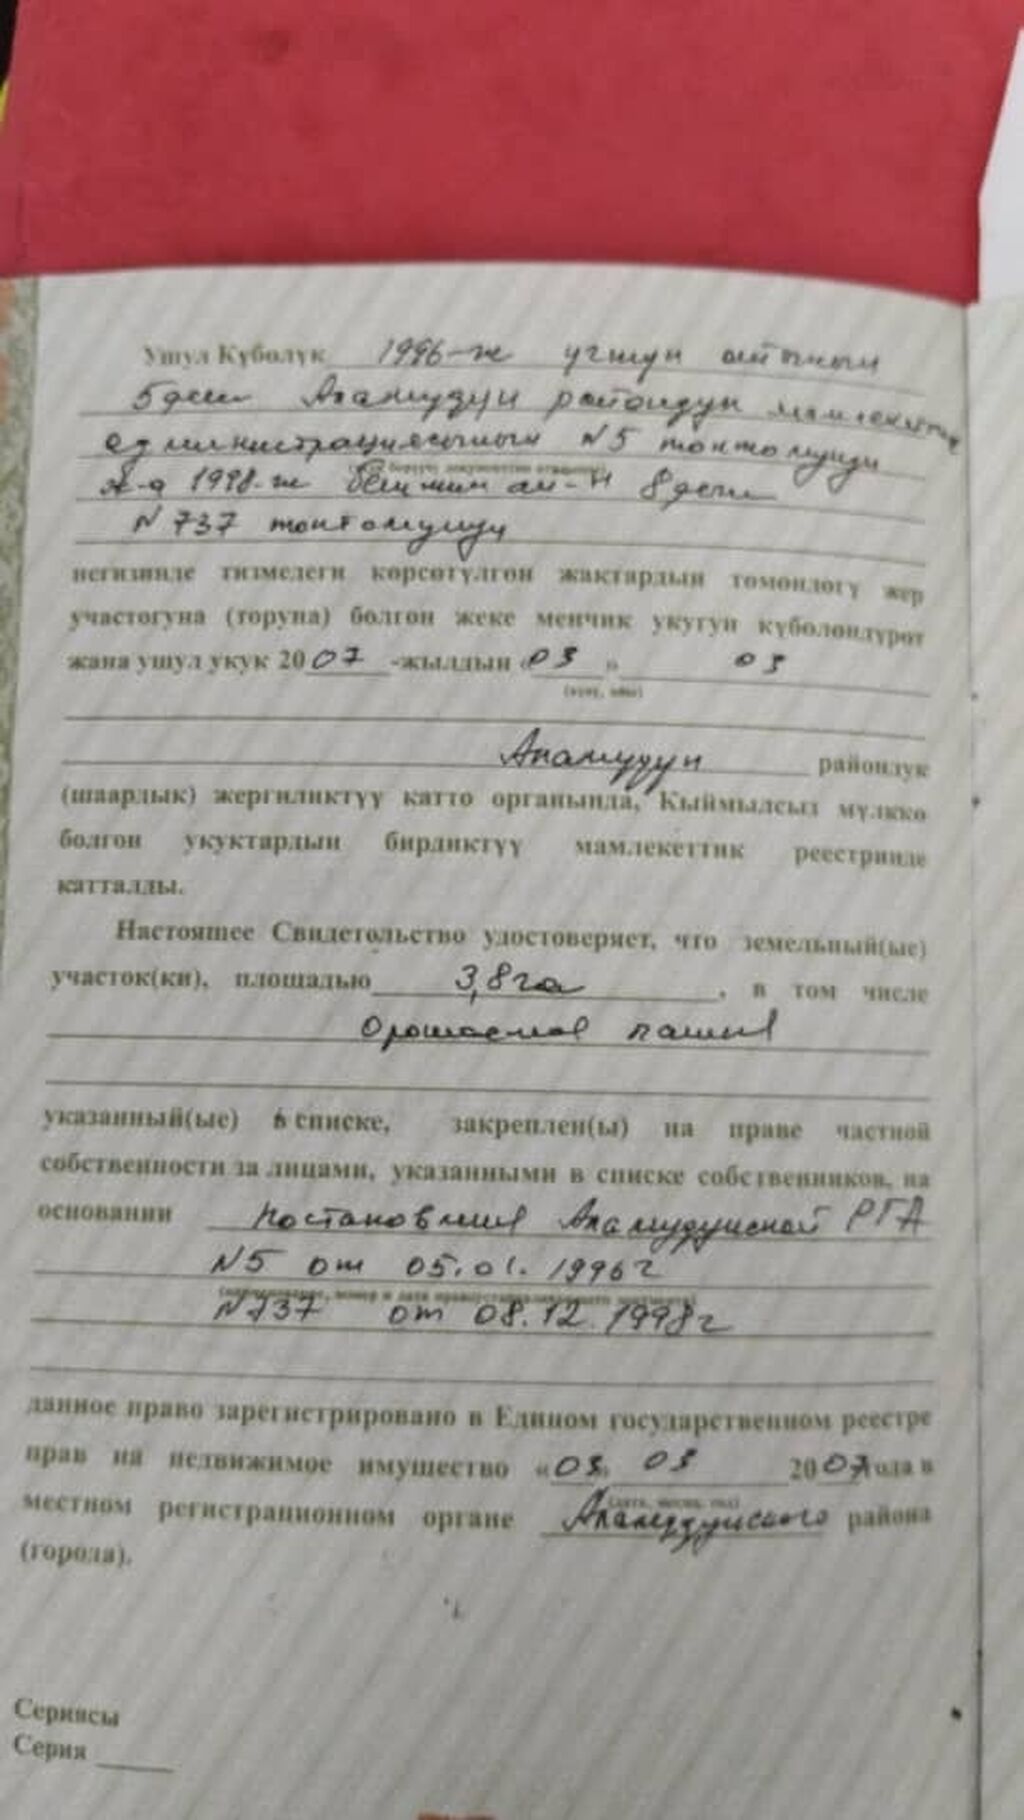 Ушул Күбөлүк 1996-ж үчтүн айынын
5деги Аламүдүн райондун мамлекеттик
администрациясынын N5 токтомунун
ж-а 1998-ж бештин ай-н 8деги
N 737 токтомунун
негизинде тизмедеги көрсөтүлгөн жактардын төмөндөгү жер
участогуна (торуна) болгон жеке менчик укугун күбөлөндүрөт
жана ушул укук 2007 -жылдын «03 » 03
(күнү, айы)
Аламүдүн райондук
(шаардык) жергиликтүү каттоо органында, Кыймылсыз мүлккө
болгон укуктардын бирдиктүү мамлекеттик реестринде
катталды.
Настоящее Свидетельство удостоверяет, что земельный(ые)
участок(ки), площадью 3,8га , в том числе
Орошаемая пашня
указанный(ые) в списке, закреплен(ы) на праве частной
собственности за лицами, указанными в списке собственников, на
основании Постановления Аламудунской РГА
N5 от 05.01.1996г
N737 от 08.12.1998г
данное право зарегистрировано в Едином государственном реестре
прав на недвижимое имущество «03» 03 2007 года в
местном регистрационном органе Аламудунского района
(города).
Сериясы
Серия